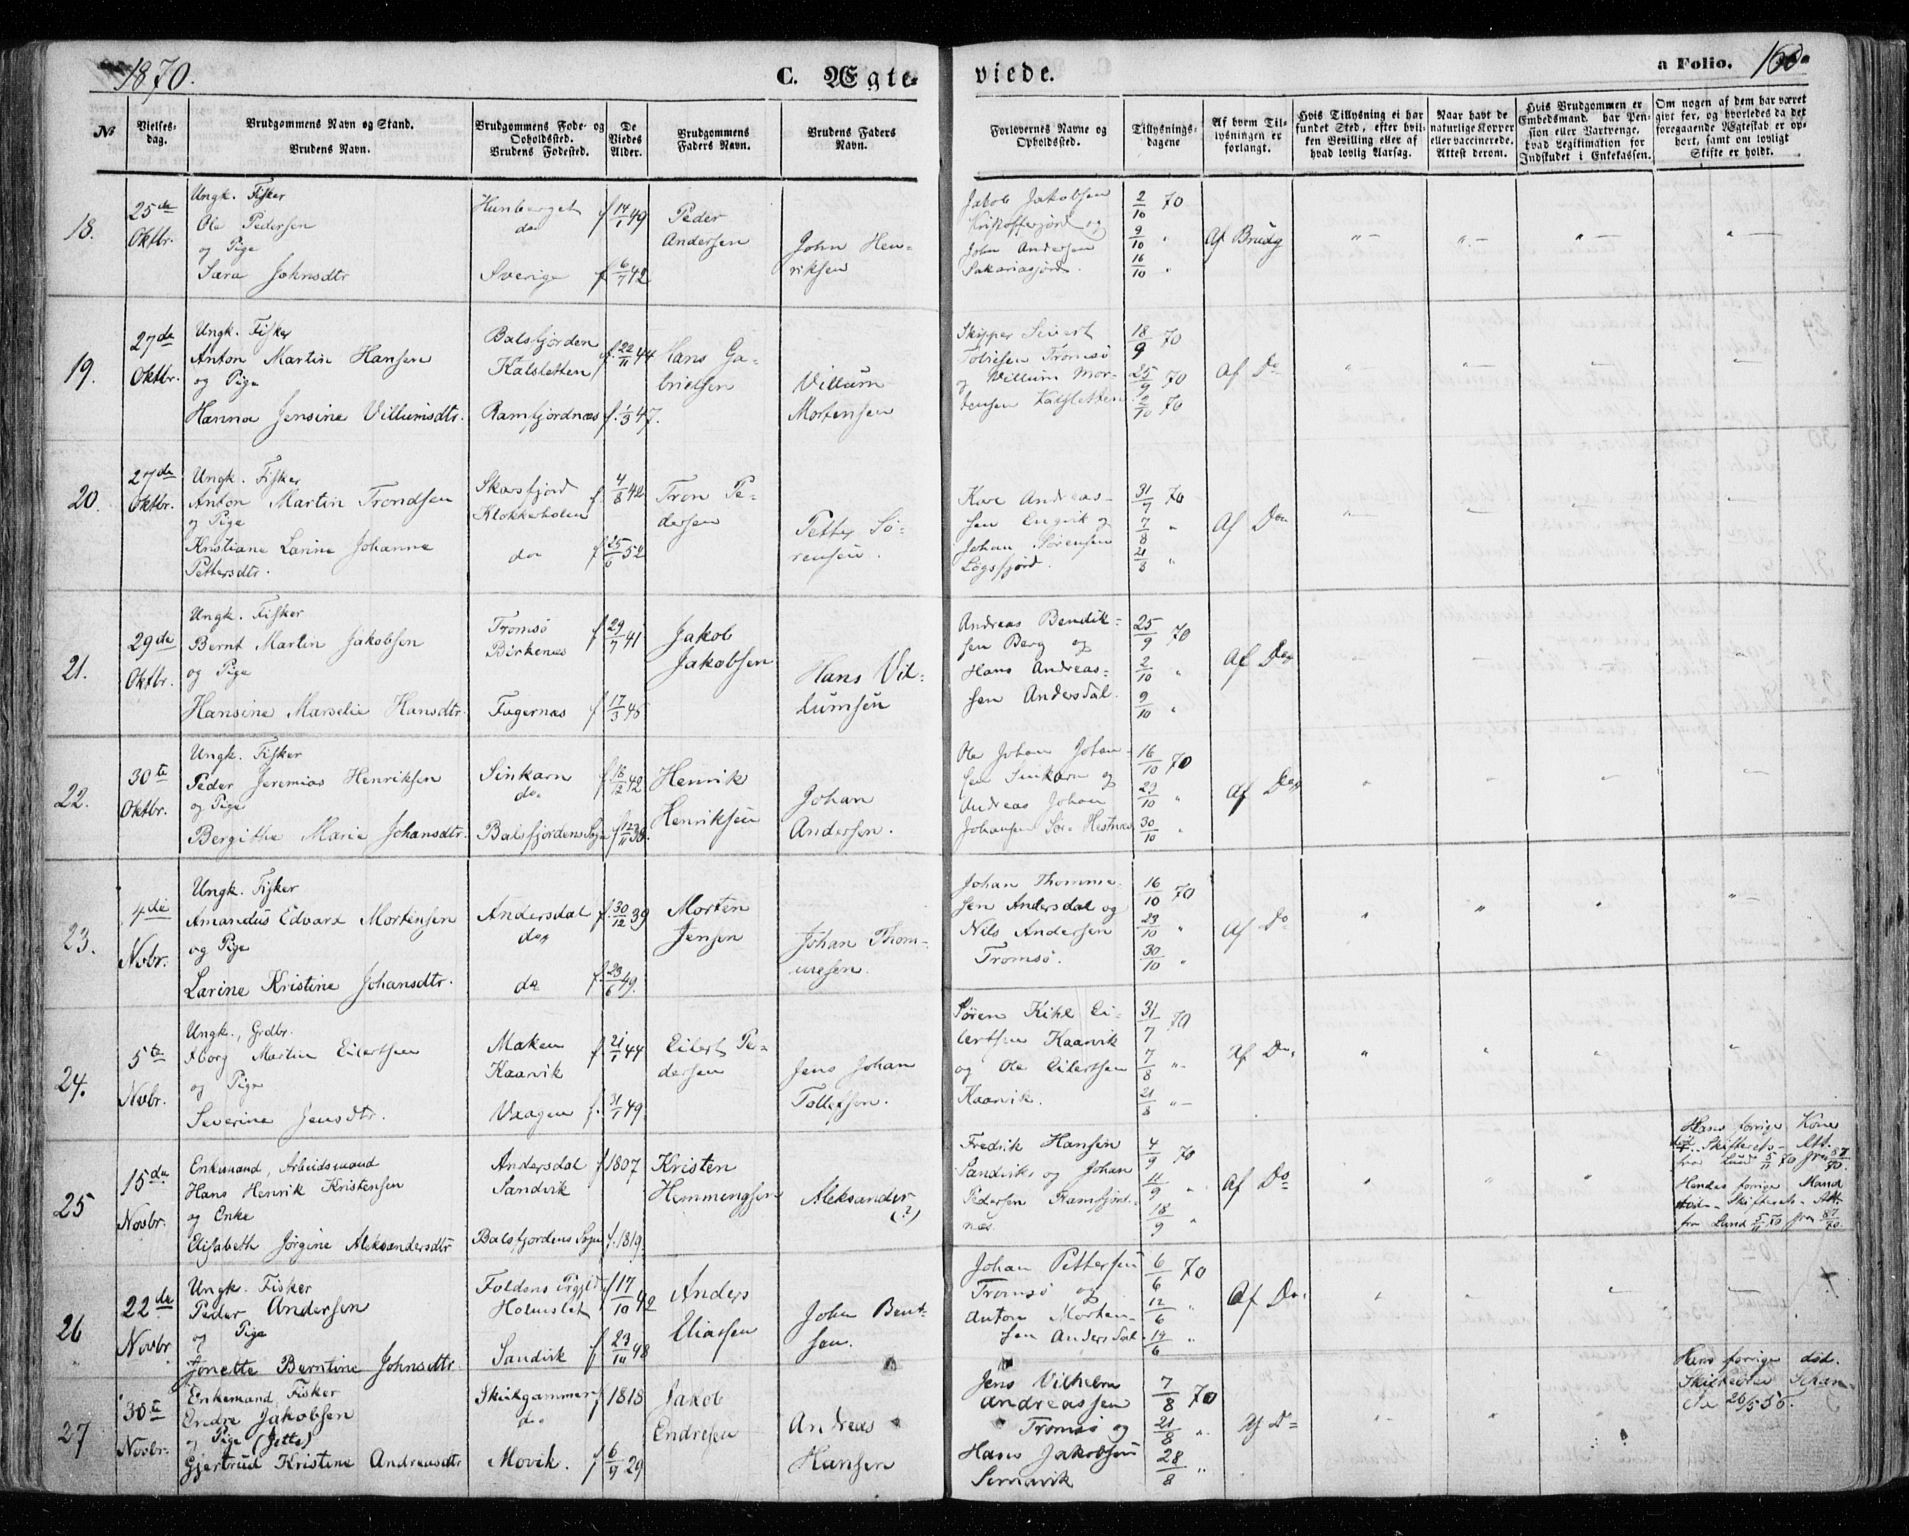 1870.
C. Ægte-
viede.
a Folio. 160.
No
Vielses-dag.
Brudgommens Navn og Stand.
Brudens Navn.
Brudgommens Føde- og Opholdssted.
Brudens Fødested.
De Viedes Alder.
Brudgommens Faders Navn.
Brudens Faders Navn.
Forlovernes Navne og Opholdssted.
Tillysnings-dagene
Af hvem Tillysningen er forlangt.
Hvis Tillysning ei har fundet Sted, efter hvilken Bevilling eller af hvad lovlig Aarsag.
Naar havt de naturlige Kopper eller vaccinerede. Attest derom.
Hvis Brudgommen er Embedsmand, har Pension eller Vartpenge, hvad Legitimation for Indskudet i Enkekassen.
Om nogen af dem har været gift før, og hvorledes da det foregaaende Ægteskab er ophørt, samt om lovligt Skifte er holdt.
18.
25de Oktbr.
Ungk. Fisker
Ole Pedersen
og Pige
Sara Johnsdtr
Hunberget
do
Sverige
f 14/1 49
f 6/7 42
Peder
Andersen
John Hen-
riksen
Jakob Jakobsen
Kristofferjord og
John Andersen
Sakariasjord.
2/10 70
9/10 "
16/10 "
Af Brudg
19.
27de Oktbr.
Ungk. Fisker
Anton Martin Hansen
og Pige
Hanna Jensine Villumsdtr.
Balsfjorden
Kalsletten
Ramfjordnæs
f. 22/11 44
f. 1/3 47.
Hans Ga-
brielsen
Villum
Mortensen
Skipper Sivert
Tobiesen Tromsø
og Villum Mor-
tensen Kalsletten
18/9 70
25/9 70
2/10 70
Af Do
20.
27de Oktbr.
Ungk. Fisker
Anton Martin Trondsen
og Pige
Kristiane Larine Johanne
Pettersdtr.
Skarsfjord
Klokkerholen
do
f 4/8 42
Tron Pe-
dersen
Petter Sø-
rensen.
Andreas-
sen Engvik og
Johan Sørensen
Løgsfjord.
31/7 70
7/8 "
21/8 "
Af Do
21.
29de Oktbr.
Ungk. Fisker
Bernt Martin Jakobsen
og Pige
Hansine Marselie Hansdtr.
Tromsø
Birkenæs
Fagernæs
f 29/7 41
f 17/3 45
Jakob
Jakobsen
Hans Vil-
lumsen
Andreas Bendik-
sen Berg og
Hans Andreas-
sen Andersdal.
25/9 70
2/10 "
9/10 "
Af Do
22.
30te Oktbr.
Ungk. Fisker
Peder Jeremias Henriksen
og Pige
Bergithe Marie Johansdtr.
Sinkarn
do.
Balsfjordens Sogn
f 16/12 42
f 12/11 38.
Henrik
Henriksen
Johan
Andersen.
Ole Johan Johan-
sen Sinkarn og
Andreas Johan
Johansen Sør-Hestnæs
16/10 70
23/10 "
30/10 "
Af Do
23.
4de Novbr.
Ungk. Fisker
Amandus Edvard Mortensen
og Pige
Larine Kristine Johansdtr.
Andersdal
do
do
f. 30/12 39
f. 23/6 49.
Morten
Jensen
Johan Thom-
mesen.
Johan Thomme-
sen Andersdal og
Nils Andersen
Tromsø.
16/10 70
23/10 "
30/10 "
Af Do
24.
5te Novbr.
Ungk., Grdbr.
Aborg Martin Eilertsen
og Pige
Severine Jensdtr.
Maken
Kaarvik
Vaagen
f. 21/1 44
f. 31/1 49.
Eilert Pe-
dersen
Jens Johan
Tollefsen.
Søren Kihl Ei-
lertsen Kaarvik
og Ole Eilertsen
Kaarvik.
31/7 70
7/8 "
21/8 "
Af Do.
25
15de Novbr.
Enkemand, Arbeidsmand
Hans Henrik Kristensen
og Enke
Elisabeth Jørgine Aleksandersdtr
Andersdal
Sandvik
Balsfjordens Sogn
f 1807
f. 1819.
Kristen
Hemmingsen
Aleksander
(?)
Fredrik Hansen
Sandvik og Johan
Pedersen Ramfjord-
næs.
4/9 70
11/9 "
18/9 "
Af Do
Hans forrige Kone
død. Skifterets-Att.
fra Lund 5/11 70
Hendes forrige Mand
død. Skifterets-Att.
fra Lund 5/11 70
26
22de Novbr.
Ungk. Fisker
Peder Andersen
og Pige
Jonette Berntine Johnsdtr.
Foldens Prgjld
Holmslet
Sandvik
f 17/10 42
f 23/10 48
Anders
Eliassen
John Bent-
sen.
Johan Pettersen
Tromsø og
Anton Morten-
sen Andersdal.
6/6 70
12/6 "
19/6 "
Af Do.
27
30te Novbr.
Enkemand, Fisker
Endre Jakobsen
og Pige (Jette)
Gjertrud Kristine Andreasdtr
Skulgammen
do
Movik.
f 1818
f 6/9 29
Jakob
Endresen
Andreas
Hansen
Jens Vilhelm
Andreassen
Tromsø og
Hans Jakobsen
7/8 70
21/8 "
28/8 "
Af Do
Hans forrige død.
26/5 56.